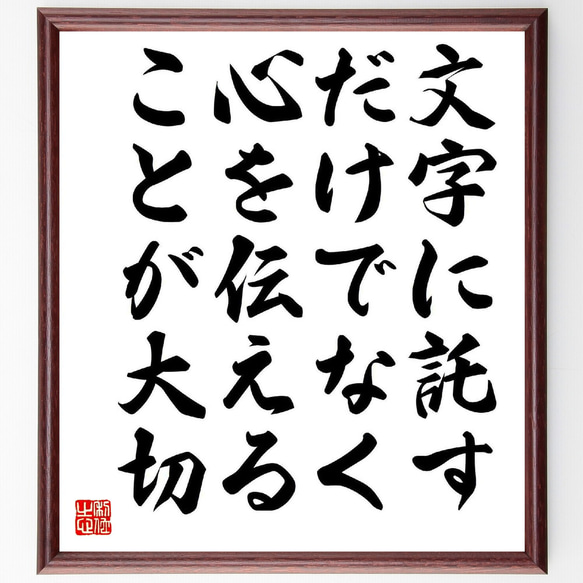 文字に託す
だけでなく
心を伝える
ことが大切